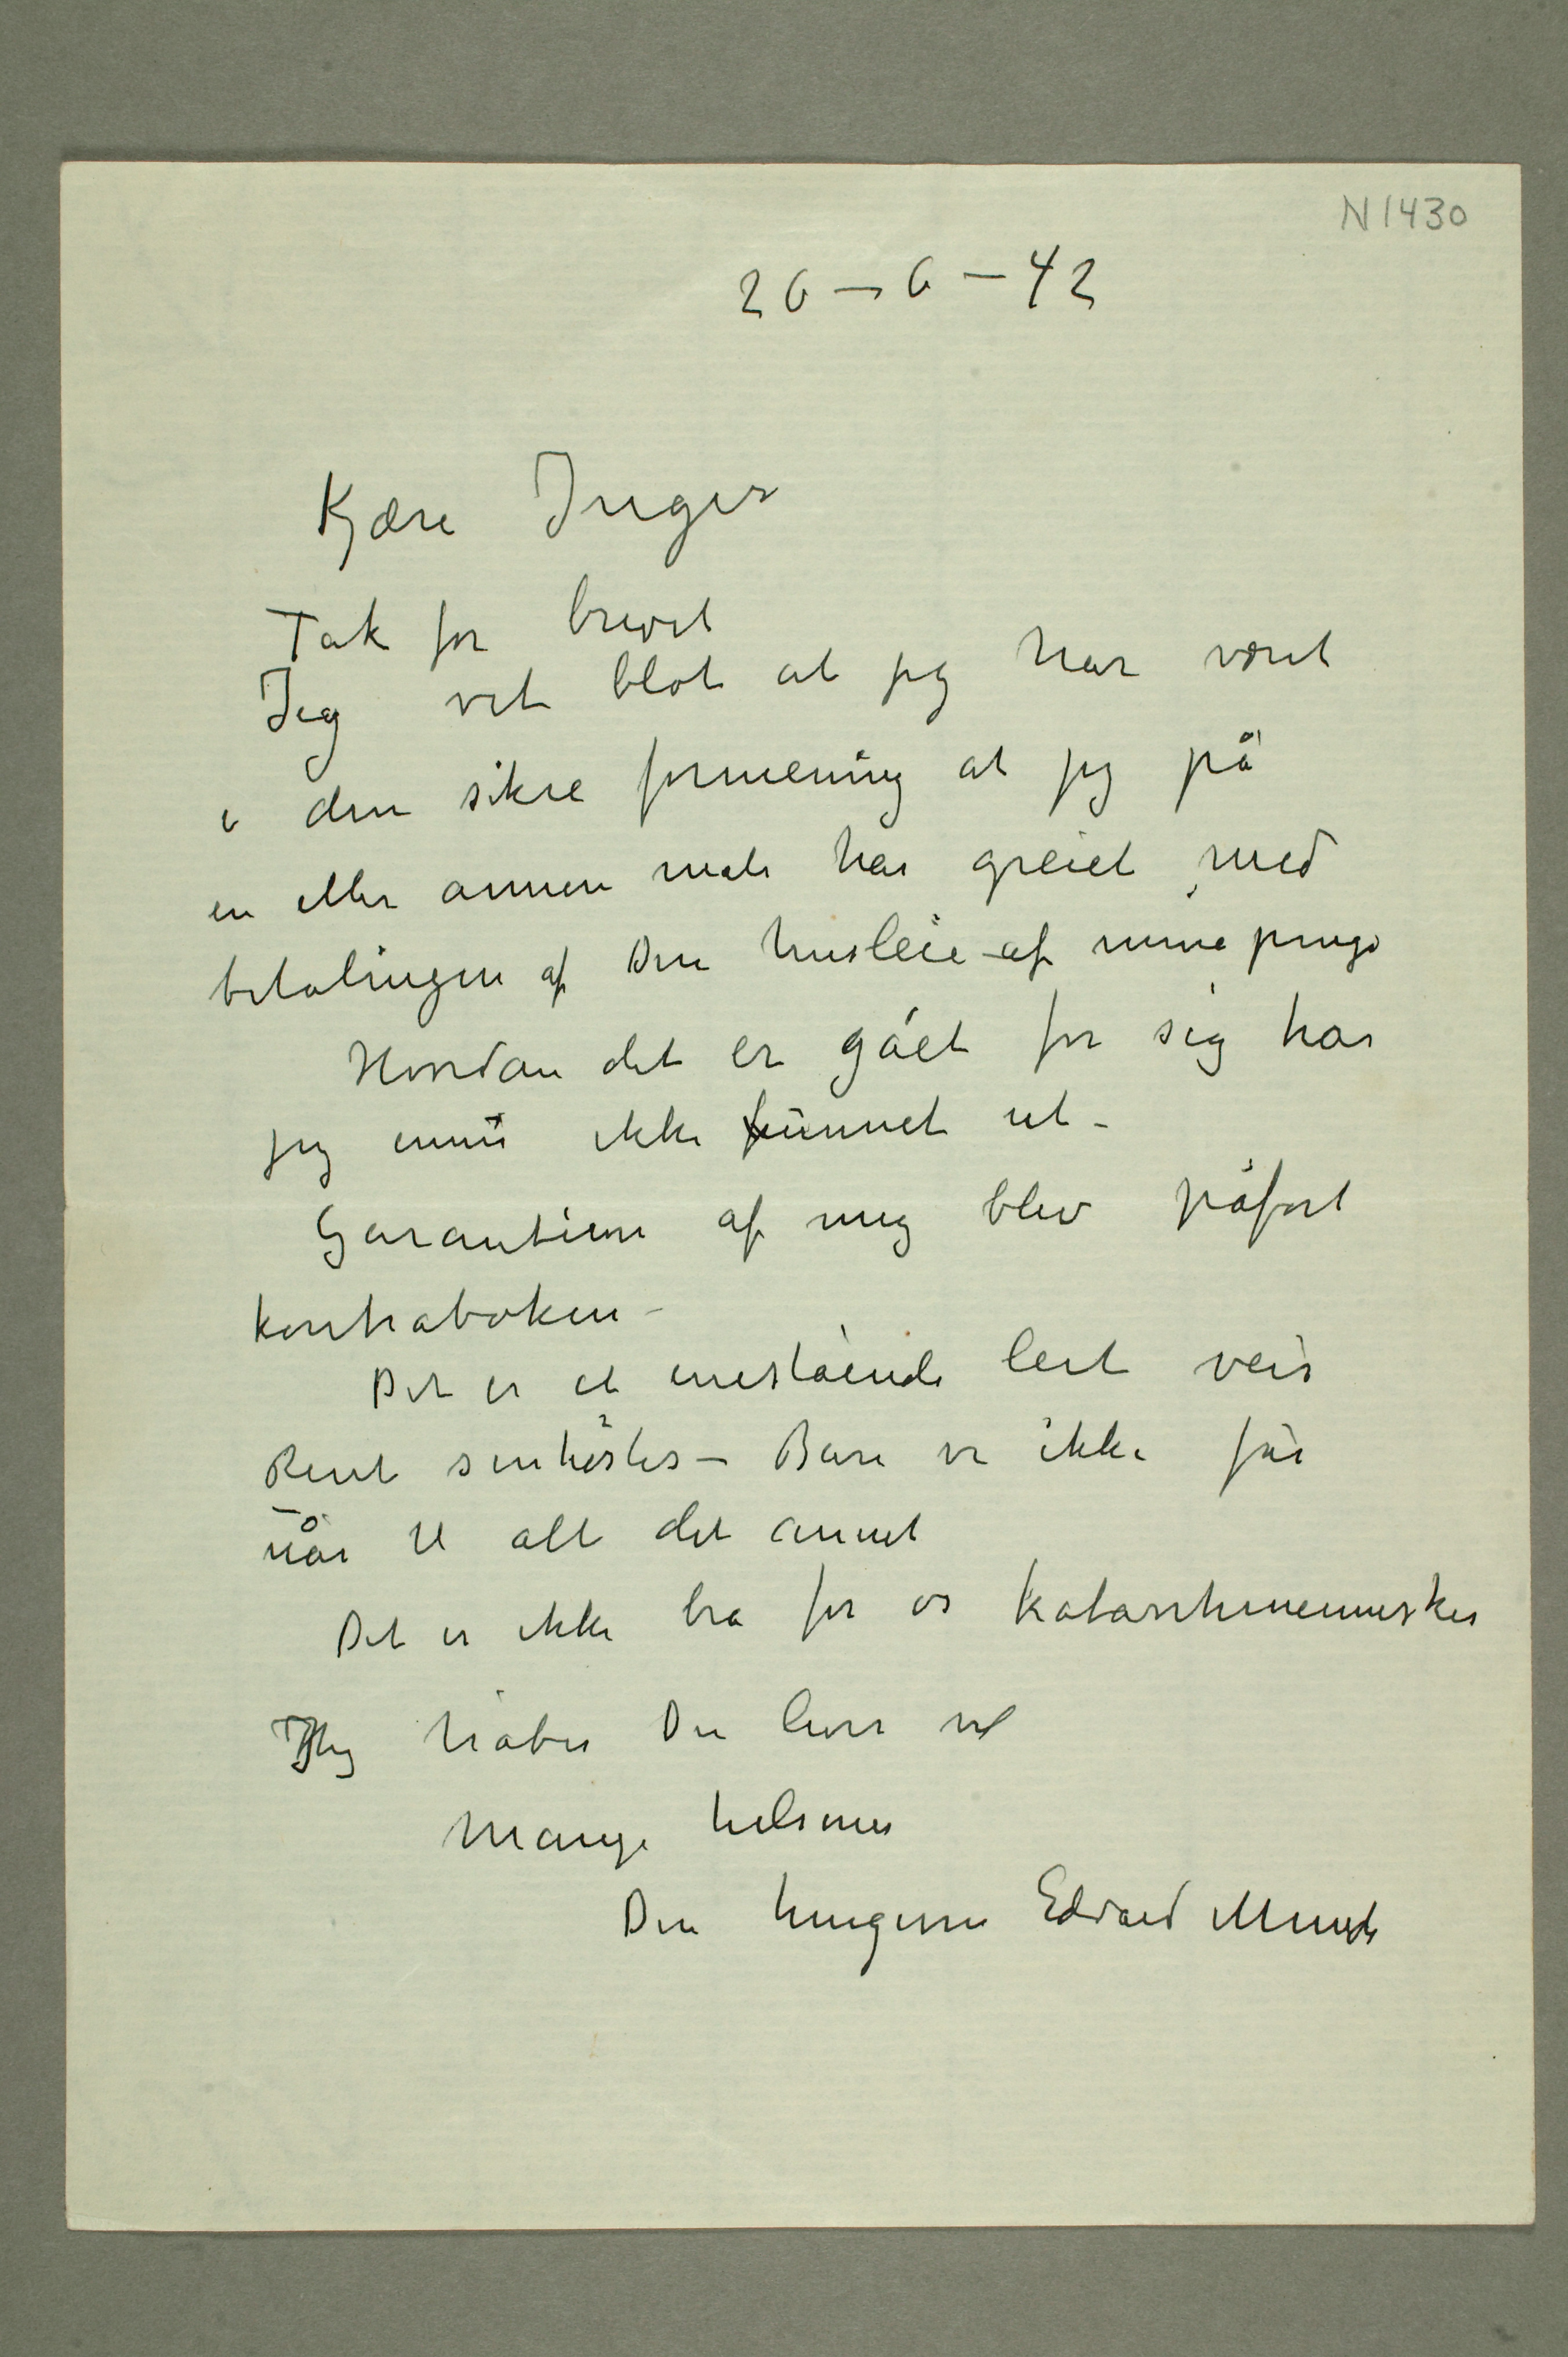 N 1430
26–6–42
Kjære Inger
Tak for brevet
Jeg vet blot at jeg har været
i den sikre formening at jeg på
en eller annen måte har greiet med
betalingen af Din husleie af mine penge
Hvordan det er gået for sig har
jeg ennu ikke funnet ut –
Garantien af mig blev påført
kontraboken –
Det er et enestående leit veir
Rent senhøstes – Bare vi ikke får
uår til alt det annet
Det er ikke bra for os katarrhmennesker
Jeg håber Du lever vel
Mange hilsener
Din hengivne Edvard Munch